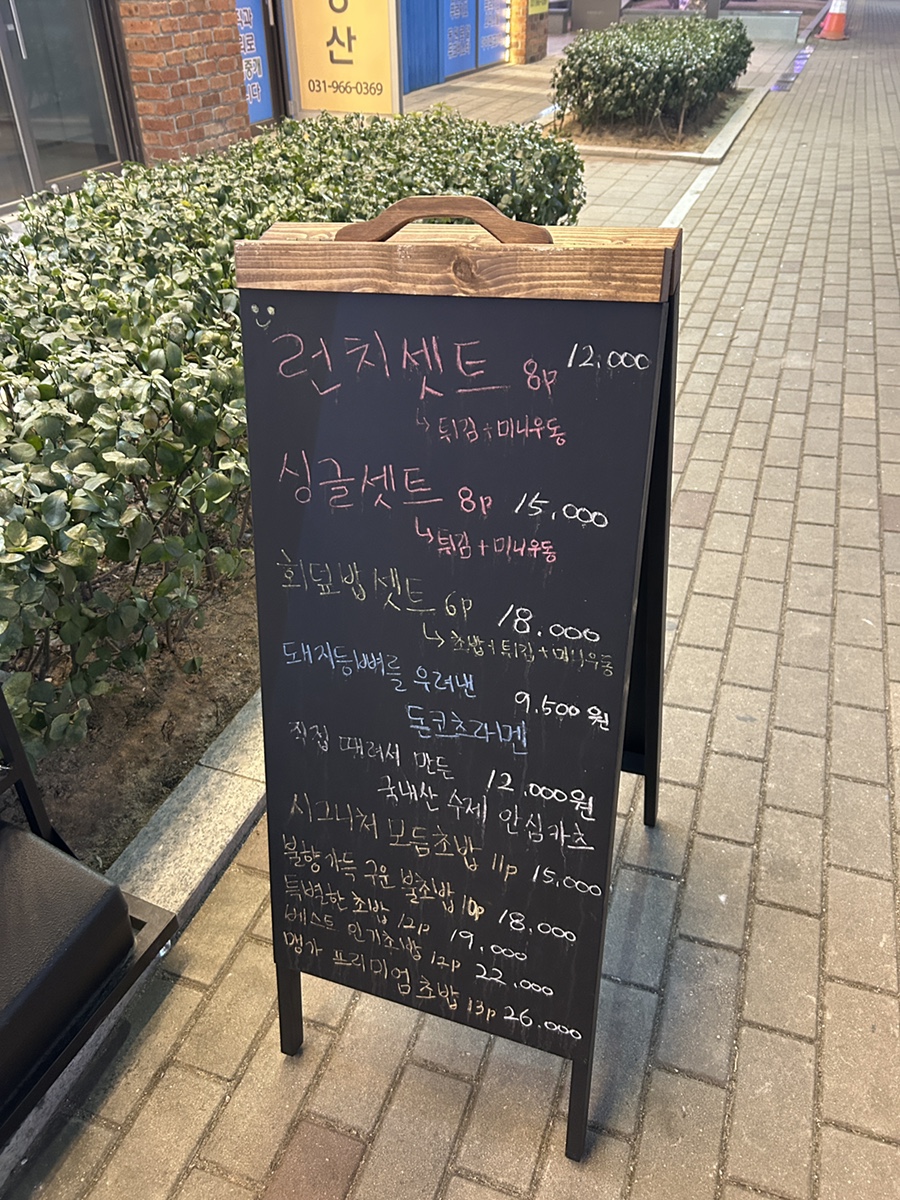 산
031-966-0369
런치셋트 8p 12,000
↳ 튀김+미니우동
싱글셋트 8p 15,000
↳ 튀김+미니우동
회덮밥셋트 6p 18.000
↳ 초밥+튀김+미니우동
돼지등뼈를 우려낸
9.500원
돈코츠라멘
직접 때려서 만든
12.000원
국내산 수제 안심카츠
시그니처 모듬초밥 11p 15,000
불향가득 구운 불초밥 10p 18,000
특별한 초밥 12p 19.000
베스트 인기초밥 12p 22,000
맹가 프리미엄 초밥 13p 26.000